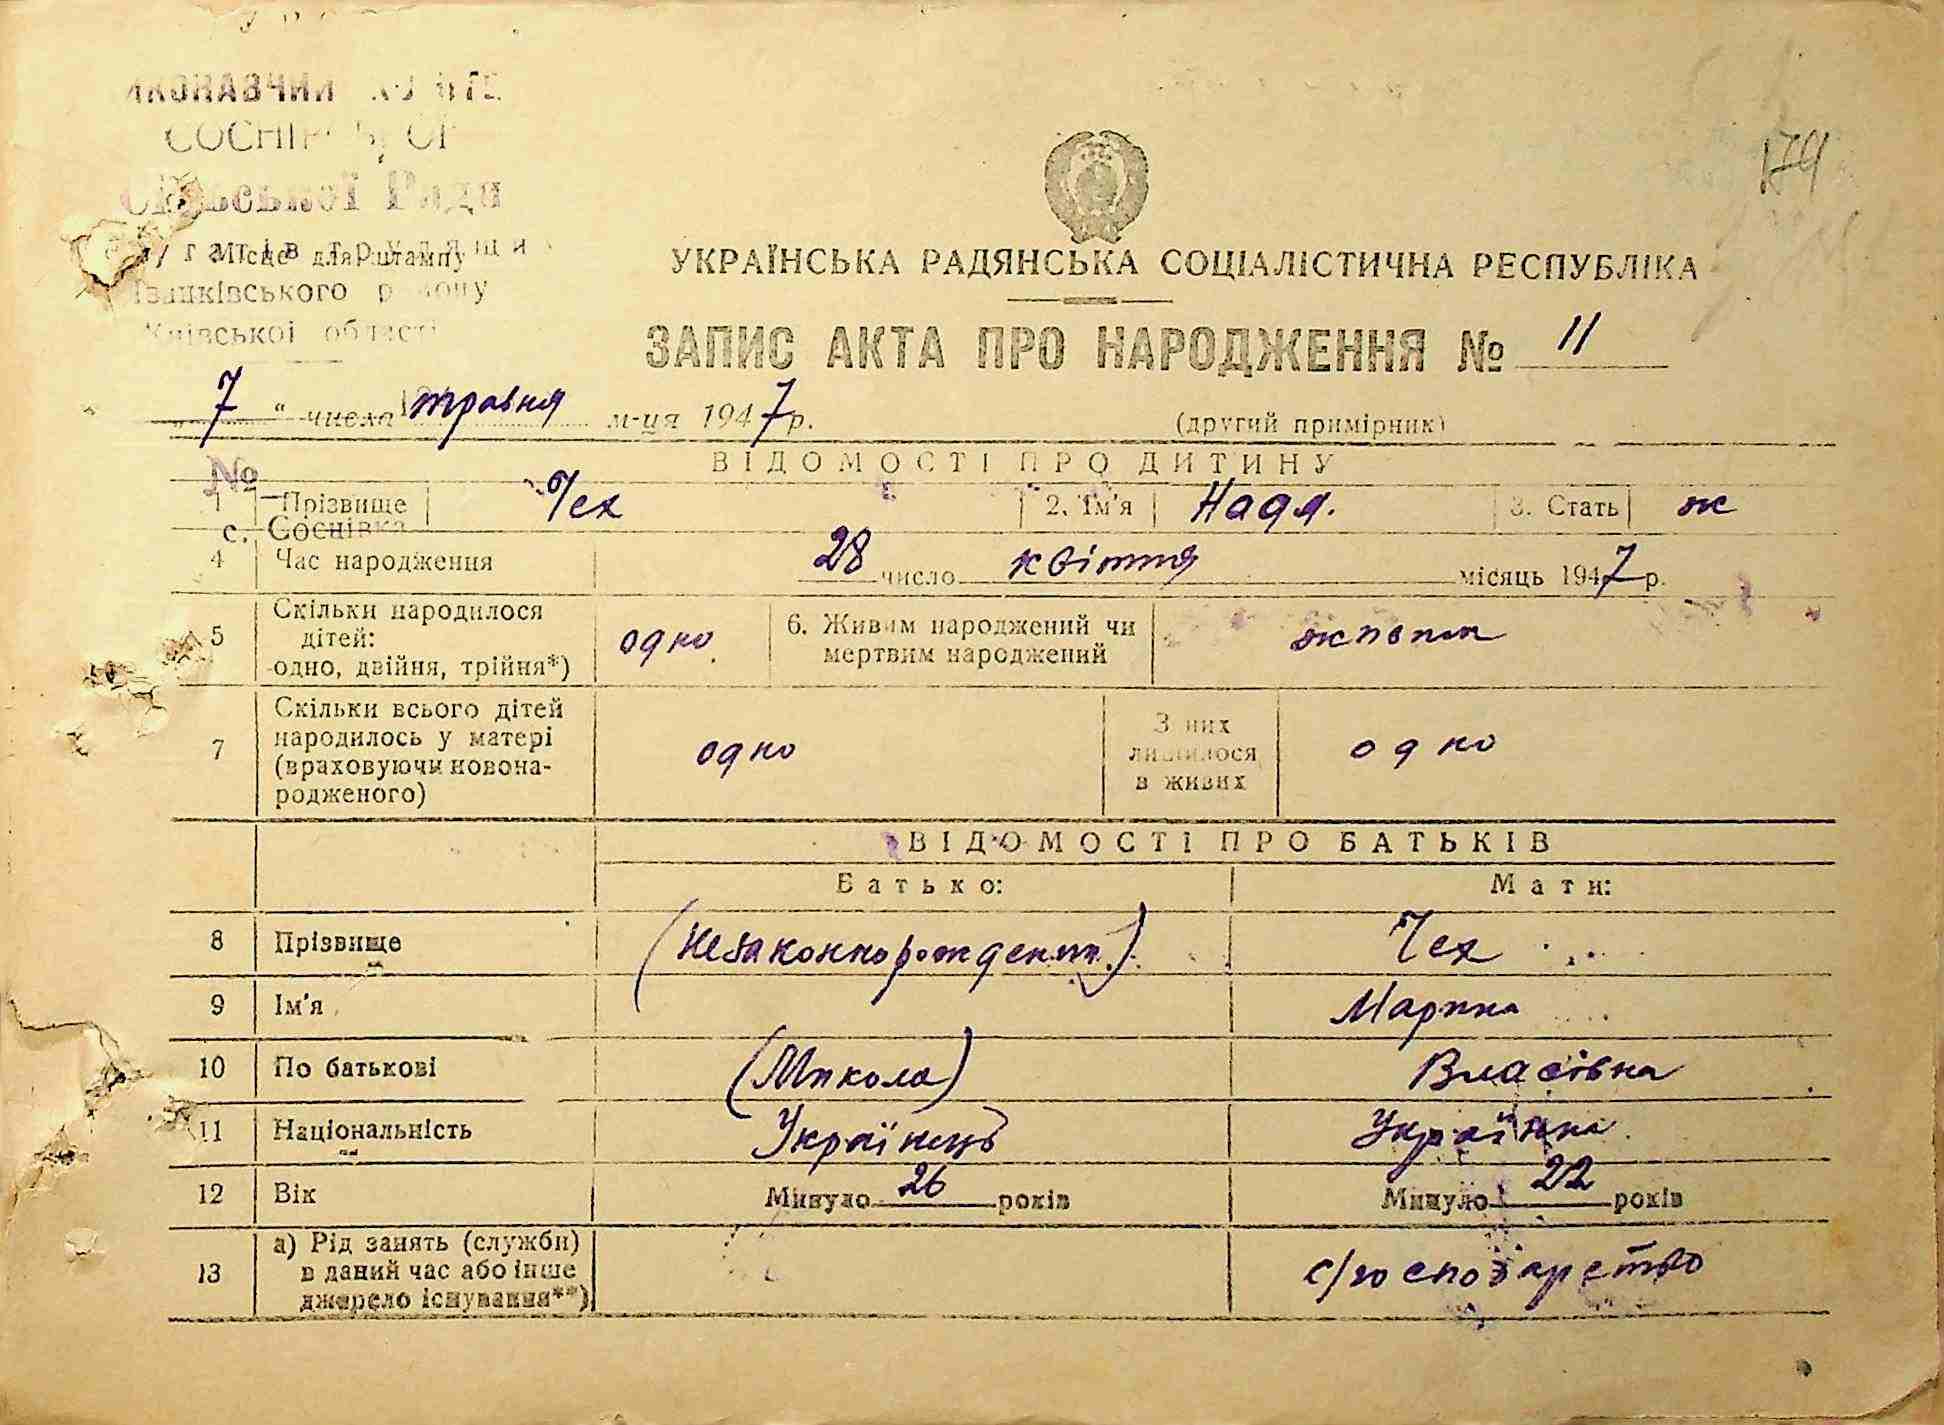 СОСНІВСЬКОЇ
Сільської Ради
Місце для штампу
Іванківського району
Київської області
179
УКРАЇНСЬКА РАДЯНСЬКА СОЦІАЛІСТИЧНА РЕСПУБЛІКА
ЗАПИС АКТА ПРО НАРОДЖЕННЯ № 11
7 " числа травня м-ця 1947 р.
(другий примірник)
ВІДОМОСТІ ПРО ДИТИНУ
№
1 Прізвище Чех 2. Ім'я Надя. 3. Стать ж
с. Соснівка
4 Час народження 28 число квітня місяць 1947 р.
5 Скільки народилося дітей: одно, двійня, трійня*) одно 6. Живим народжений чи мертвим народжений живим
7 Скільки всього дітей народилось у матері (враховуючи новонародженого) одно З них лишилося в живих одно
ВІДОМОСТІ ПРО БАТЬКІВ
Батько: Мати:
8 Прізвище (незаконнорожденн.) Чех
9 Ім'я Марина
10 По батькові (Микола) Власівна
11 Національність Українець Українка
12 Вік Минуло 26 років Минуло 22 років
13 а) Рід занять (служби) в даний час або інше джерело існування**) с/господарство